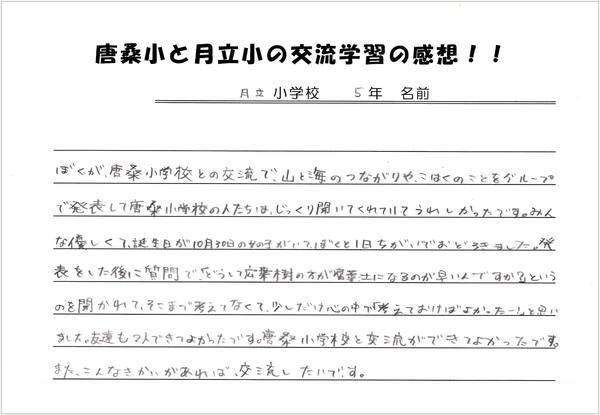 唐桑小と月立小の交流学習の感想！！
月立 小学校 5年 名前
ぼくが、唐桑小学校との交流で、山と海のつながりや、こはくのことをグループ
で発表して唐桑小学校の人たちは、じっくり聞いてくれていてうれしかったです。みん
な優しくて、誕生日が10月30日の女の子がいて、ぼくと1日ちがいでおどろきました。発
表をした後に質問で、「どうして広葉樹の方が腐葉土になるのが早いんですか？」という
のを聞かれて、そこまで考えてなくて、少しだけ心の中で「考えておけばよかったー！」と思い
ました。友達も2人できてよかったです。唐桑小学校と交流ができてよかったです。
また、こんなきかいがあれば、交流したいです。